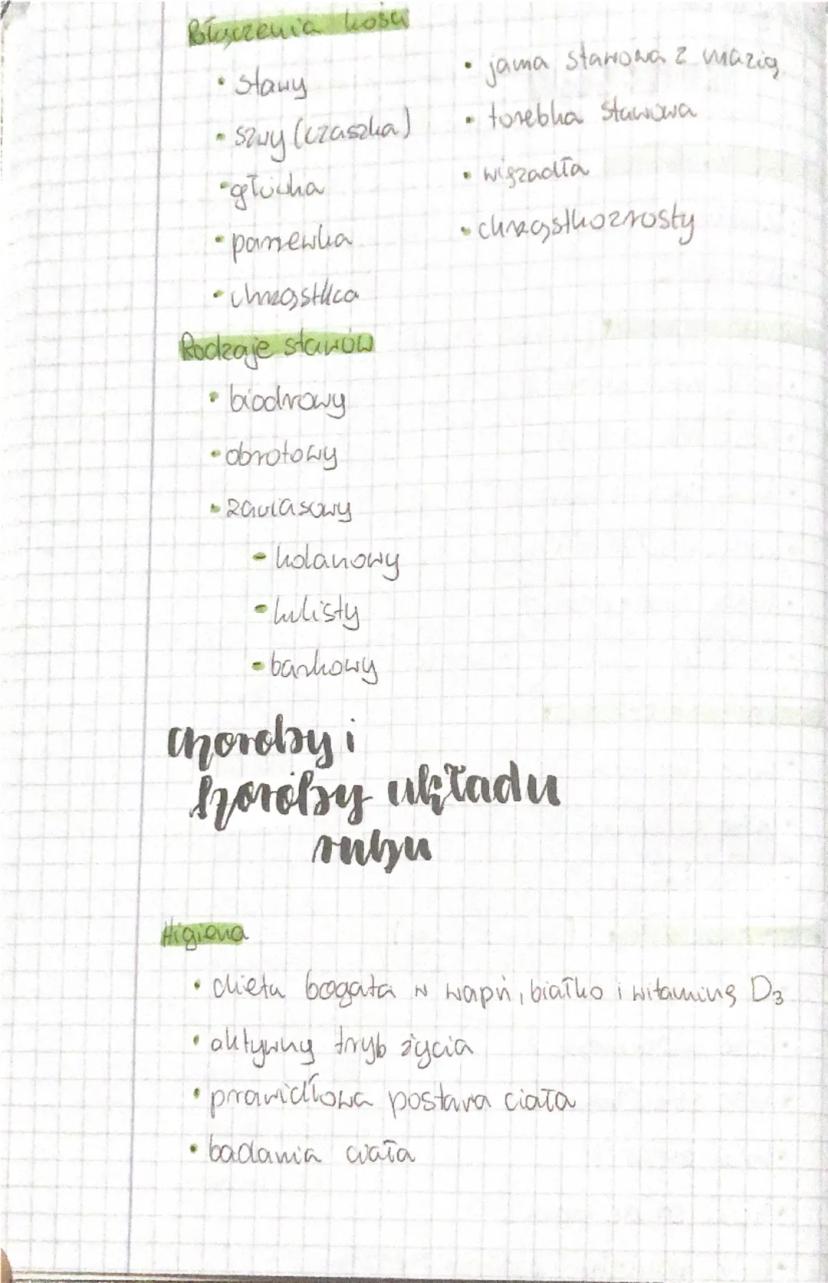 Połączenia kości
• stawy
• szwy (czaszka)
• główka
• panewka
• chrząstka
• jama stawowa z mazią
• torebka stawowa
• więzadła
• chrząstkozrosty
Rodzaje stawów
• biodrowy
• obrotowy
• zawiasowy
- kolanowy
- kulisty
- barkowy
choroby i
układu
ruchu
Higiena
• dieta bogata w wapń, białko i witaminę D3
• aktywny tryb życia
• prawidłowa postawa ciała
• badania ciała